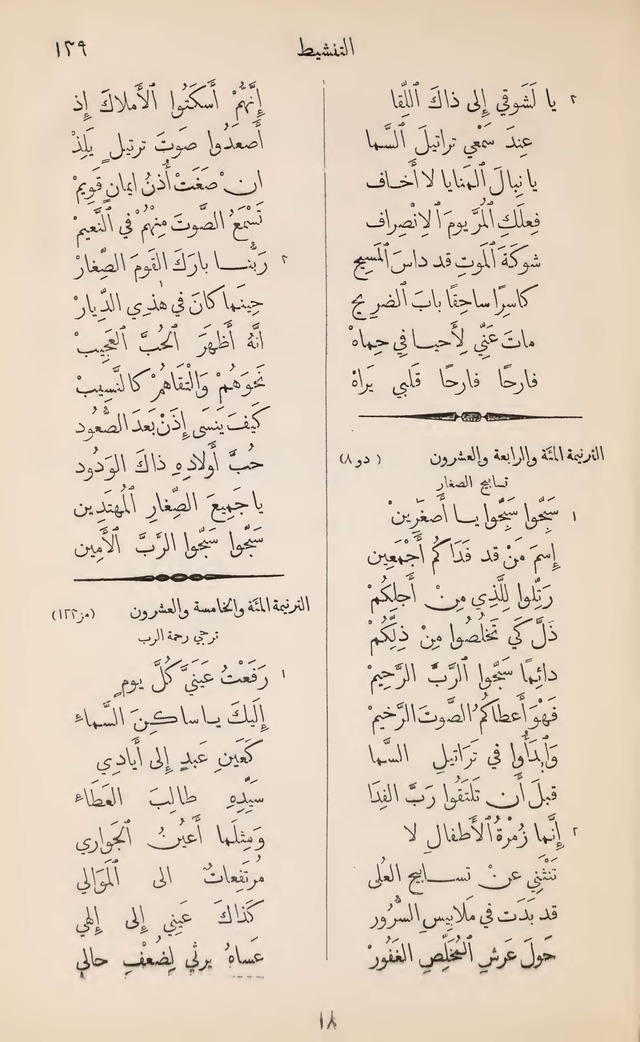 التفشيط ١٣٩
٢ يا لَشَوقي إِلى ذاكَ ٱللِّقا
عِندَ سَمْعي تراتيلَ ٱلسَّما
يا نِبالَ ٱلمَنايا لا أَخاف
فِعلَكِ ٱلمُرَّ يومَ ٱلاِنْصِراف
شوكةَ ٱلموتِ قد داسَ ٱلمَسِيح
كاسِرًا ساحِقًا بابَ ٱلضرِيح
ماتَ عَنِّي لِأَحيا فِي حِماهْ
فارحًا فارحًا قَلبي يَراهْ
الترنيمة المئة والرابعة والعشرون (دو ٨)
تسابيح الصغار
١ سَبِّحُوا سَبِّحُوا يا أَصغَرِينْ
إِسمَ مَنْ قد فَدَاكُم أَجْمَعِين
رَتِّلُوا لِلَّذِي مِنْ أَجلِكُمْ
ذَلَّ كَي تَخلُصُوا مِنْ ذِلِّكُمْ
دائِمًا سَبِّحُوا ٱلرَّبَّ الرَّحِيمْ
فَهْوَ أَعطاكُمُ الصَّوتَ الرَّخيمْ
وَٱبدَأُوا في تَرَاتِيلِ السَّما
قبلَ أَن تَلتَقُوا رَبَّ الفِدَا
٢ إِنَّما زُمْرةُ ٱلأَطفالِ لا
تَنْثَنِي عنْ تسابيح العُلى
قد بَدَت في مَلابِيسِ السُّرُور
حَولَ عَرشِ ٱلمُخلِّصِ الغَفُورْ
إِنَّهُمْ أَسكَتُوا ٱلأَملاكَ إِذ
أَصعَدُوا صَوتَ ترتيلٍ يَلِذْ
ان صَغَتْ أُذنُ ايمانٍ قَوِيمْ
تَسْمَعُ الصَّوتَ مِنْهُمْ في النَّعيمْ
٢ رَبُّنا بارَكَ القَومَ الصِّغارْ
حِينَما كانَ في هٰذِي الدِّيارْ
انَّهُ أَظهَرَ ٱلحُبَّ العَجِيبْ
نَحوَهُمْ وَٱلتَقَاهُمْ كالنَّسِيبْ
كَيفَ يَنسَى إِذَنْ بَعدَ الصُّعُود
حُبَّ أَولادِهِ ذاكَ الوَدُود
يا جَمِيعَ الصِّغارِ ٱلمُهتَدِين
سَبِّحُوا سَبِّحُوا الرَّبَّ ٱلأَمِين
الترنيمة المئة والخامسة والعشرون (مز ١٢٣)
ترجي رحمة الرب
١ رَفَعْتُ عَينَيَّ كُلَّ يومٍ
إِلَيكَ يا ساكِنَ السَّماءِ
كَعَينِ عَبدٍ إِلى أَيادِي
سَيِّدِهِ طالِبَ العَطَاءِ
وَمِثلَما أَعيُنُ ٱلجَوارِي
مُرتَفِعاتٌ الى ٱلمَوَالِي
كَذاكَ عَينِي إِلى إِلهِي
عَساهُ يرثِي لِضُعْفِ حالِي
١٨